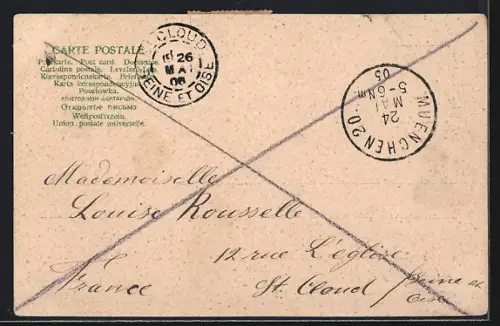 CARTE POSTALE
Postkarte. Post card. Dopisnice.
Cartolina postale. Levelező-lap.
Korrespondenzkarte. Brefkort.
Karta korespondencyjna.
Pocztowka.
Открытое письмо
Weltpostverein.
Union postale universelle.
CLOUD
26
MAI
06
SEINE ET OISE
MUENCHEN 20
24
MAI
5-6 Nm
05
Mademoiselle
Louise Rousselle
12 rue L'église
France
St. Cloud
Seine et
Oise